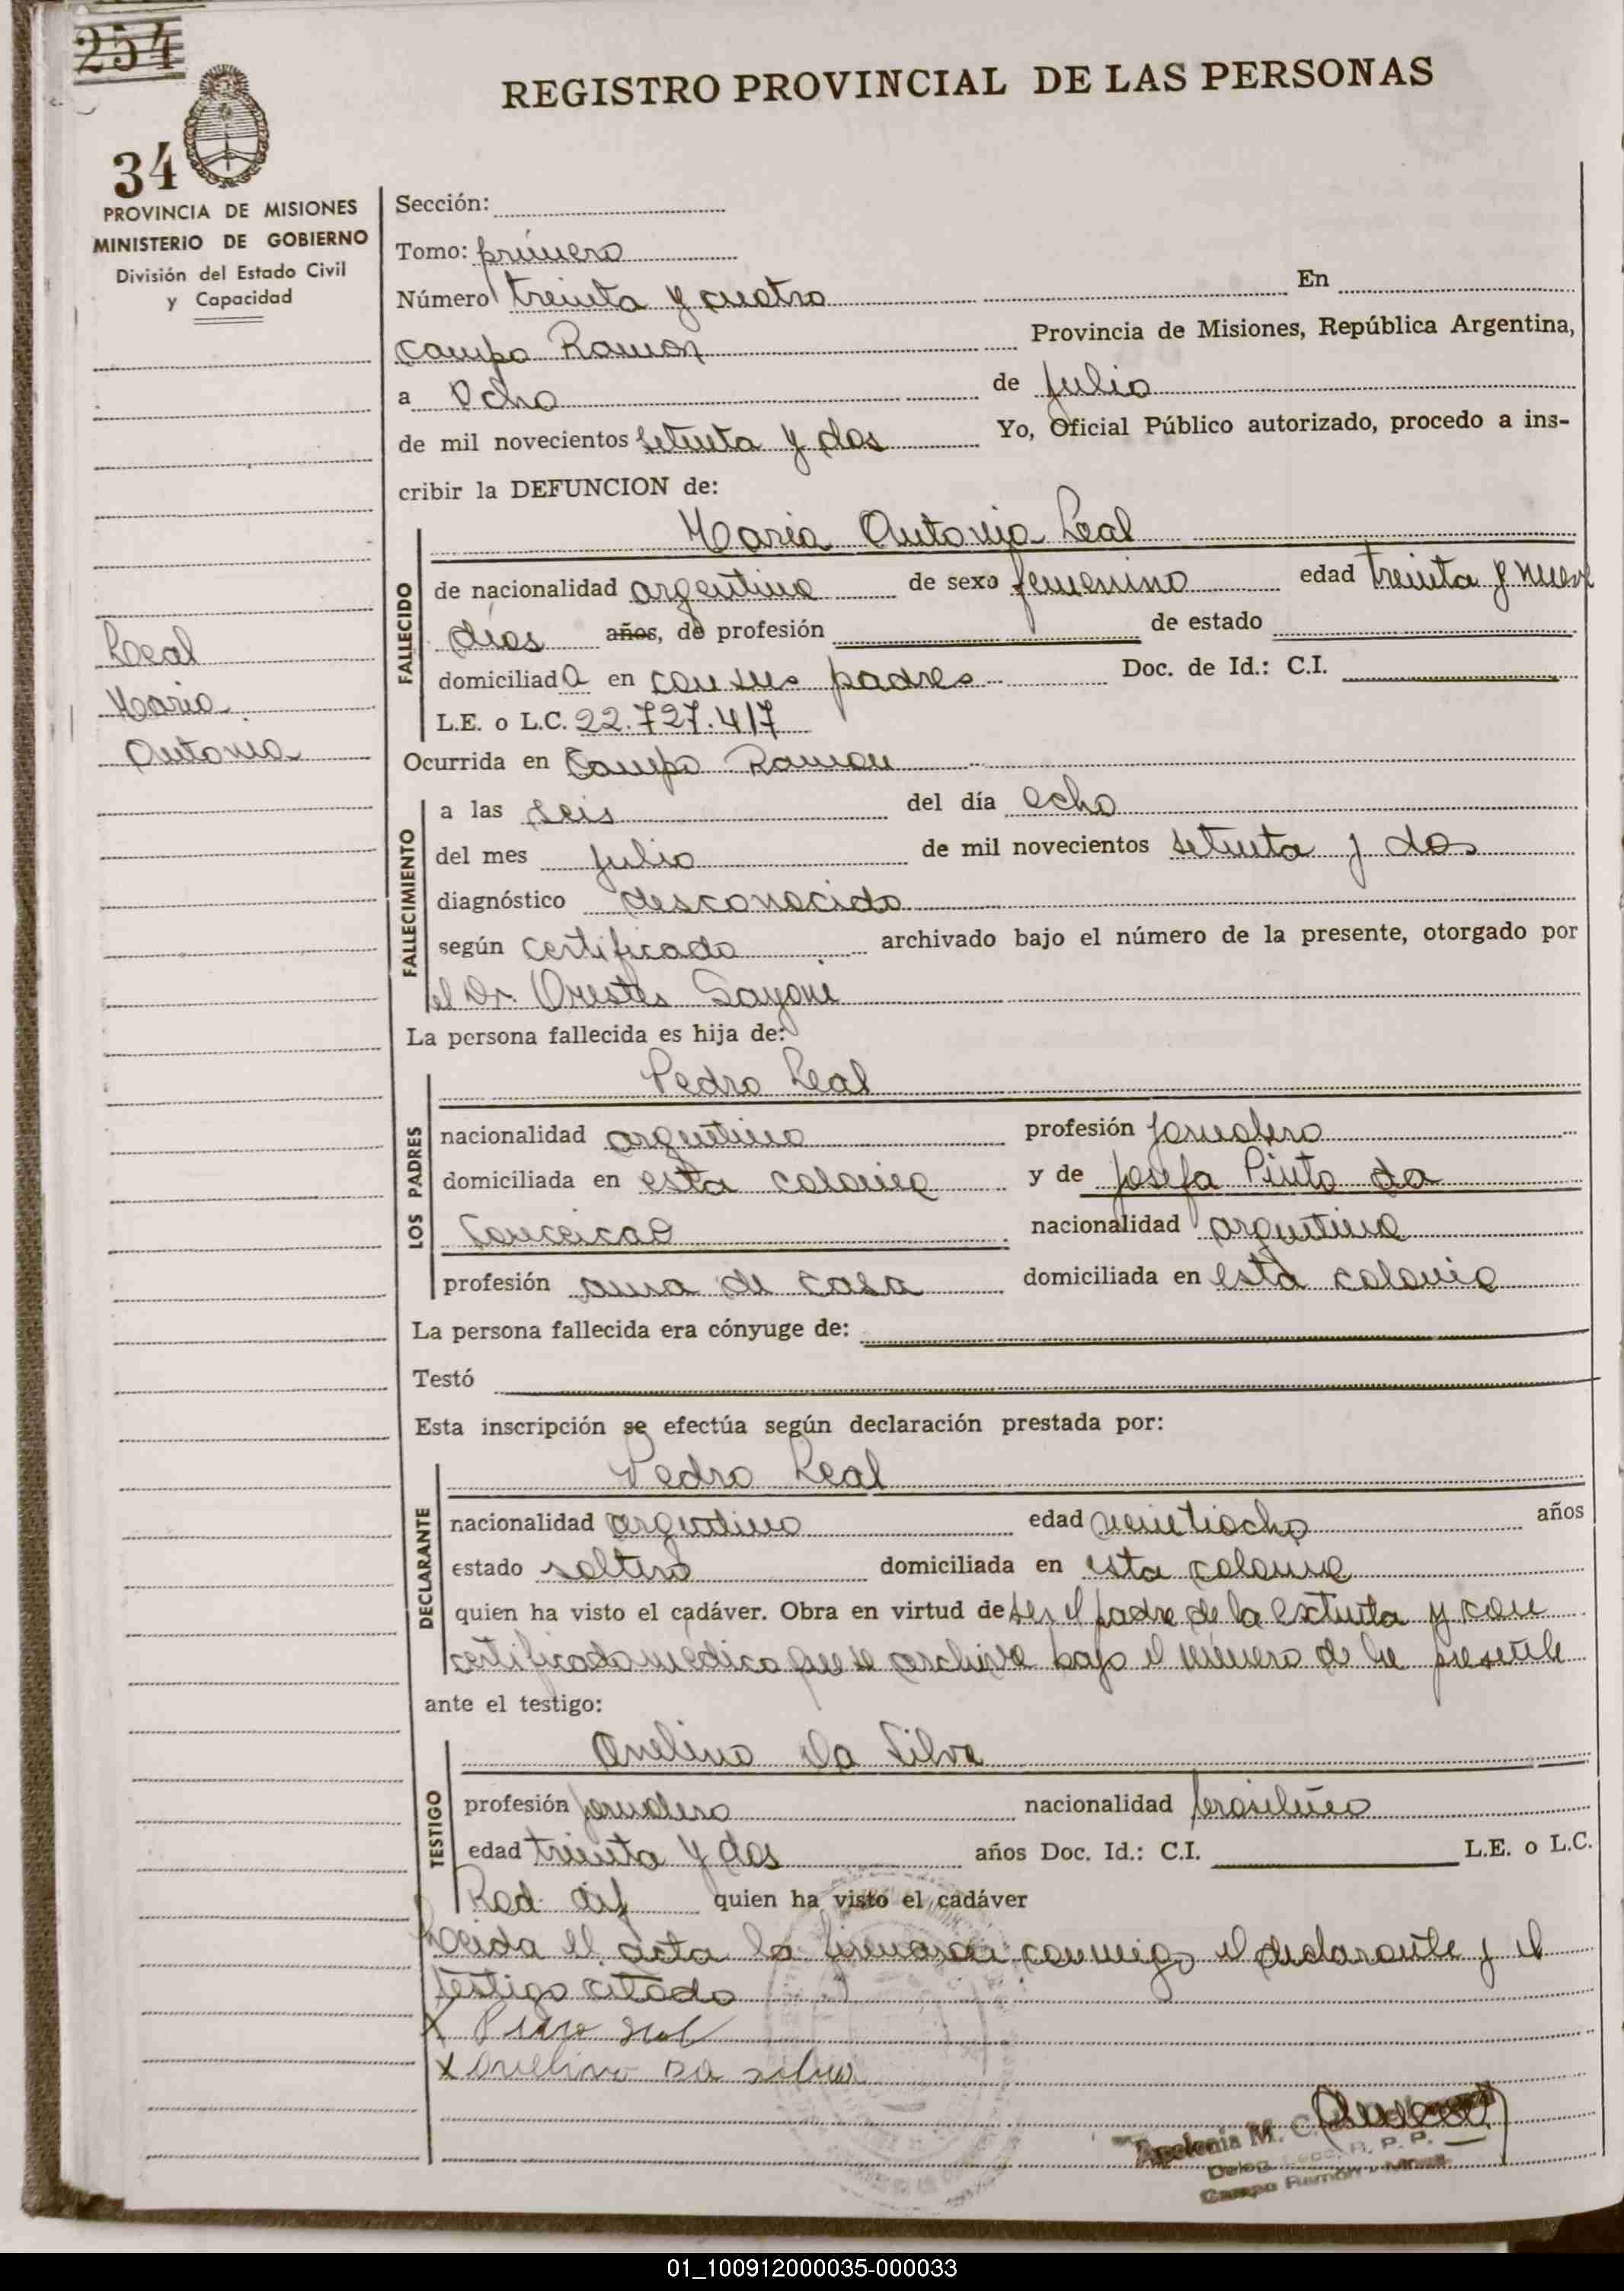 254
REGISTRO PROVINCIAL DE LAS PERSONAS
34
PROVINCIA DE MISIONES
MINISTERIO DE GOBIERNO
División del Estado Civil
y Capacidad
Leal
Maria
Antonia
Sección:
Tomo: primero
Número treinta y cuatro En
Campo Ramon Provincia de Misiones, República Argentina,
a Ocho de julio
de mil novecientos setenta y dos Yo, Oficial Público autorizado, procedo a ins-
cribir la DEFUNCION de:
Maria Antonia Leal
FALLECIDO
de nacionalidad argentina de sexo femenino edad treinta y nueve
días años, de profesión de estado
domiciliada en con sus padres Doc. de Id.: C.I.
L.E. o L.C. 22.727.417
Ocurrida en Campo Ramon
FALLECIMIENTO
a las seis del día ocho
del mes julio de mil novecientos setenta y dos
diagnóstico desconocido
según certificado archivado bajo el número de la presente, otorgado por
el Dr. Orestes
La persona fallecida es hija de:
Pedro Leal
LOS PADRES
nacionalidad argentino profesión jornalero
domiciliada en esta colonia y de Josefa Pinto da
Conceicao nacionalidad argentina
profesión ama de casa domiciliada en esta colonia
La persona fallecida era cónyuge de:
Testó
Esta inscripción se efectúa según declaración prestada por:
Pedro Leal
DECLARANTE
nacionalidad argentino edad veintiocho años
estado soltero domiciliada en esta colonia
quien ha visto el cadáver. Obra en virtud de ser el padre de la extinta y con
certificado medico que se archiva bajo el número de la presente
ante el testigo:
Avelino Da Silva
TESTIGO
profesión jornalero nacionalidad brasileño
edad treinta y dos años Doc. Id.: C.I. L.E. o L.C.
Rad. quien ha visto el cadáver
Leida el acta la firmaran conmigo el declarante y el
testigo citado
X Pedro Leal
X Avelino Da Silva
Apolonia M. C.
R. P. P.
Campo Ramón - Mnes.
01_100912000035-000033